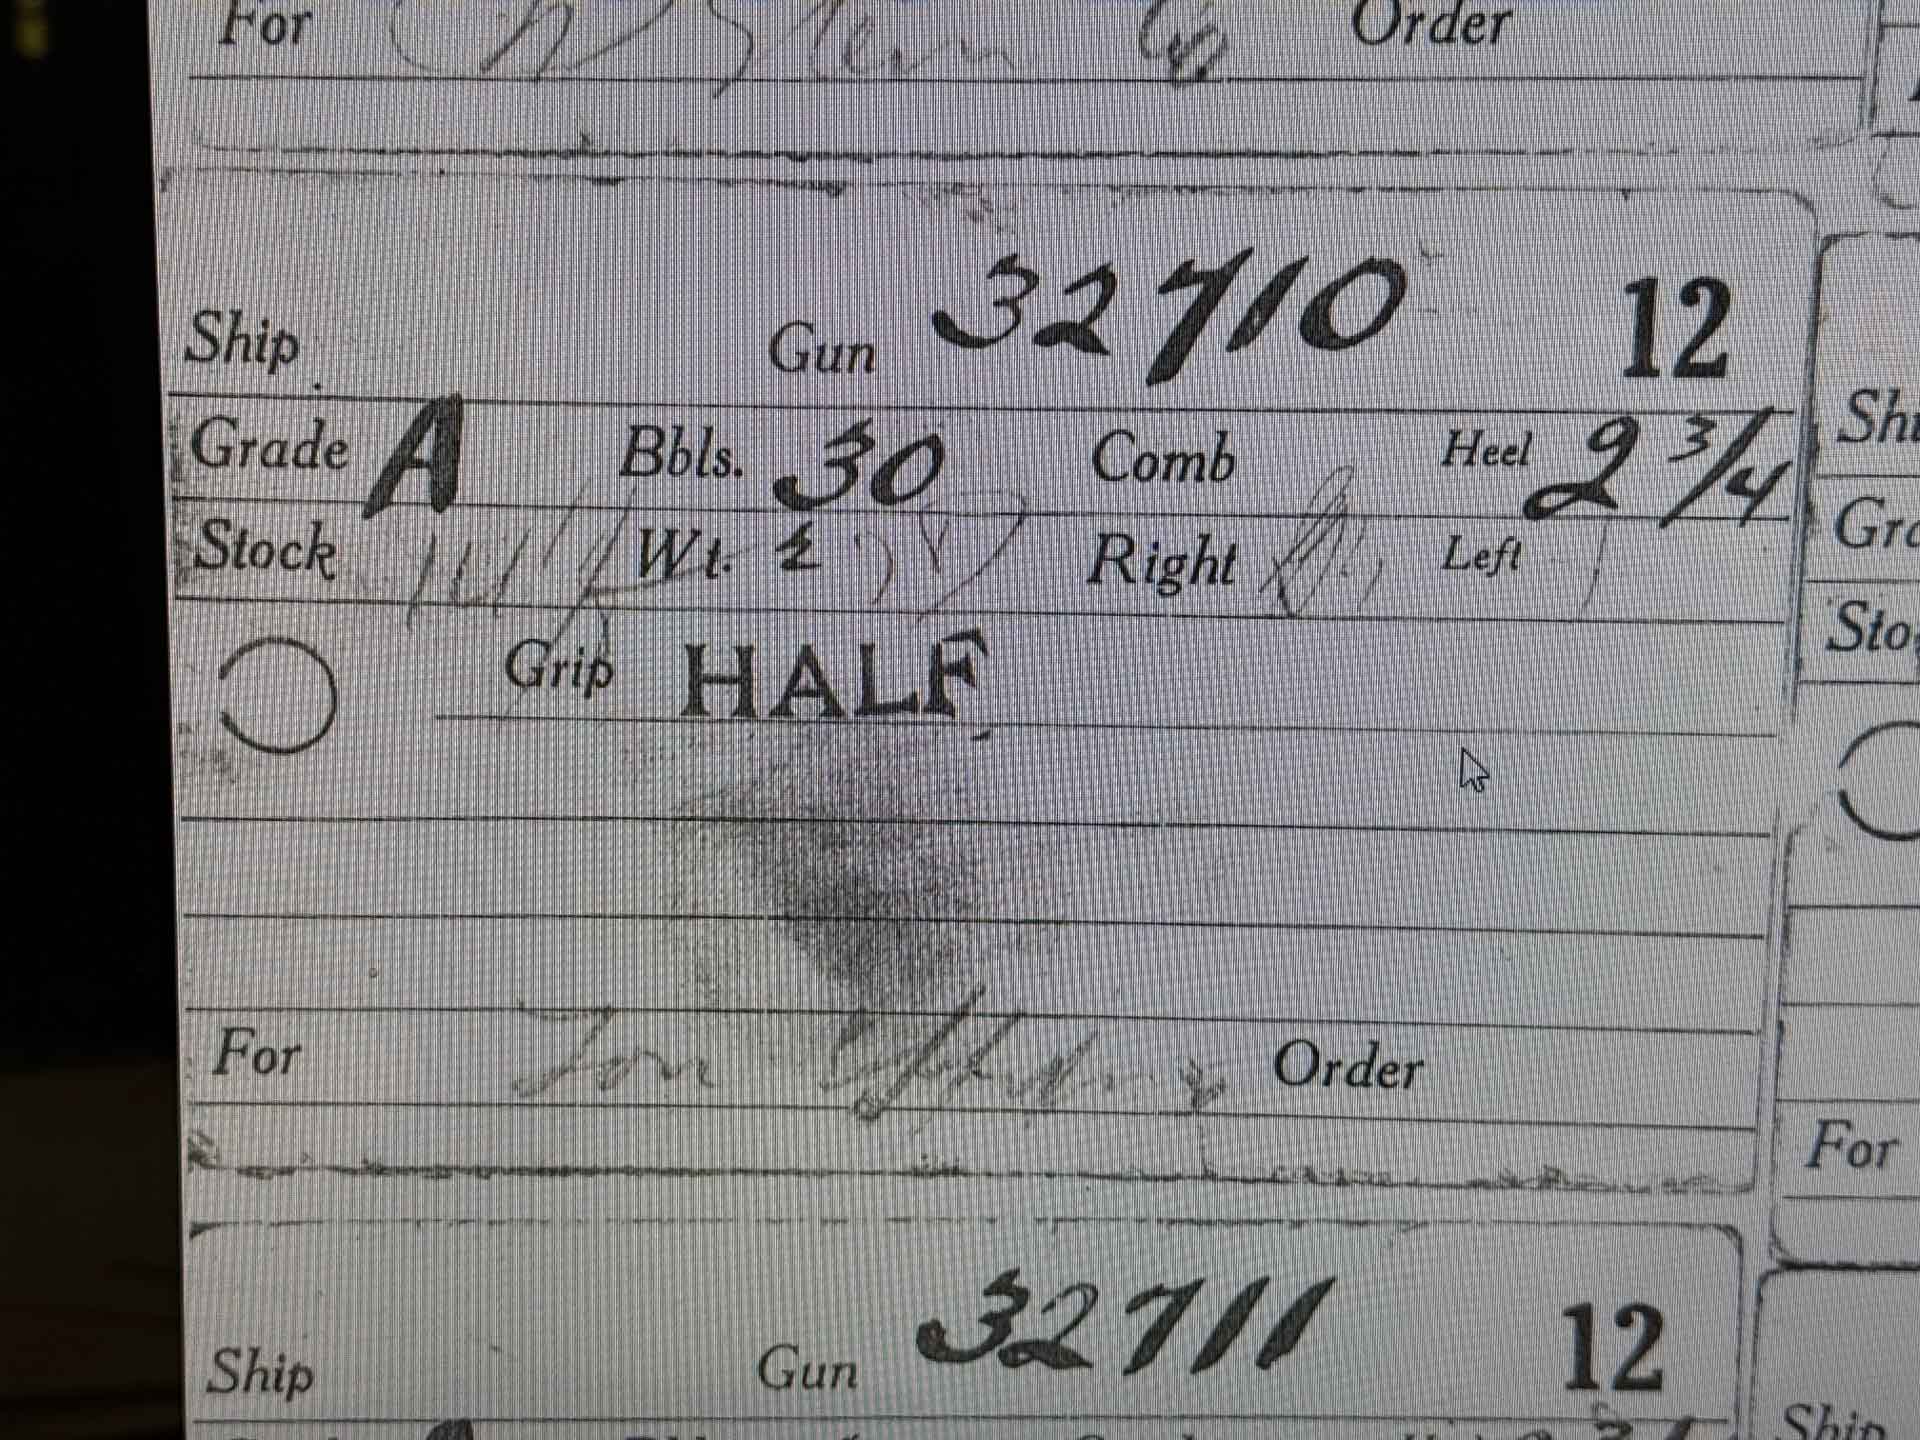 For Order
Ship Gun 32710 12
Grade A Bbls. 30 Comb Heel 2 3/4
Stock Wt. Right Left
Grip HALF
For Order
Ship Gun 32711 12
Shi
Gra
Sto
For
Ship